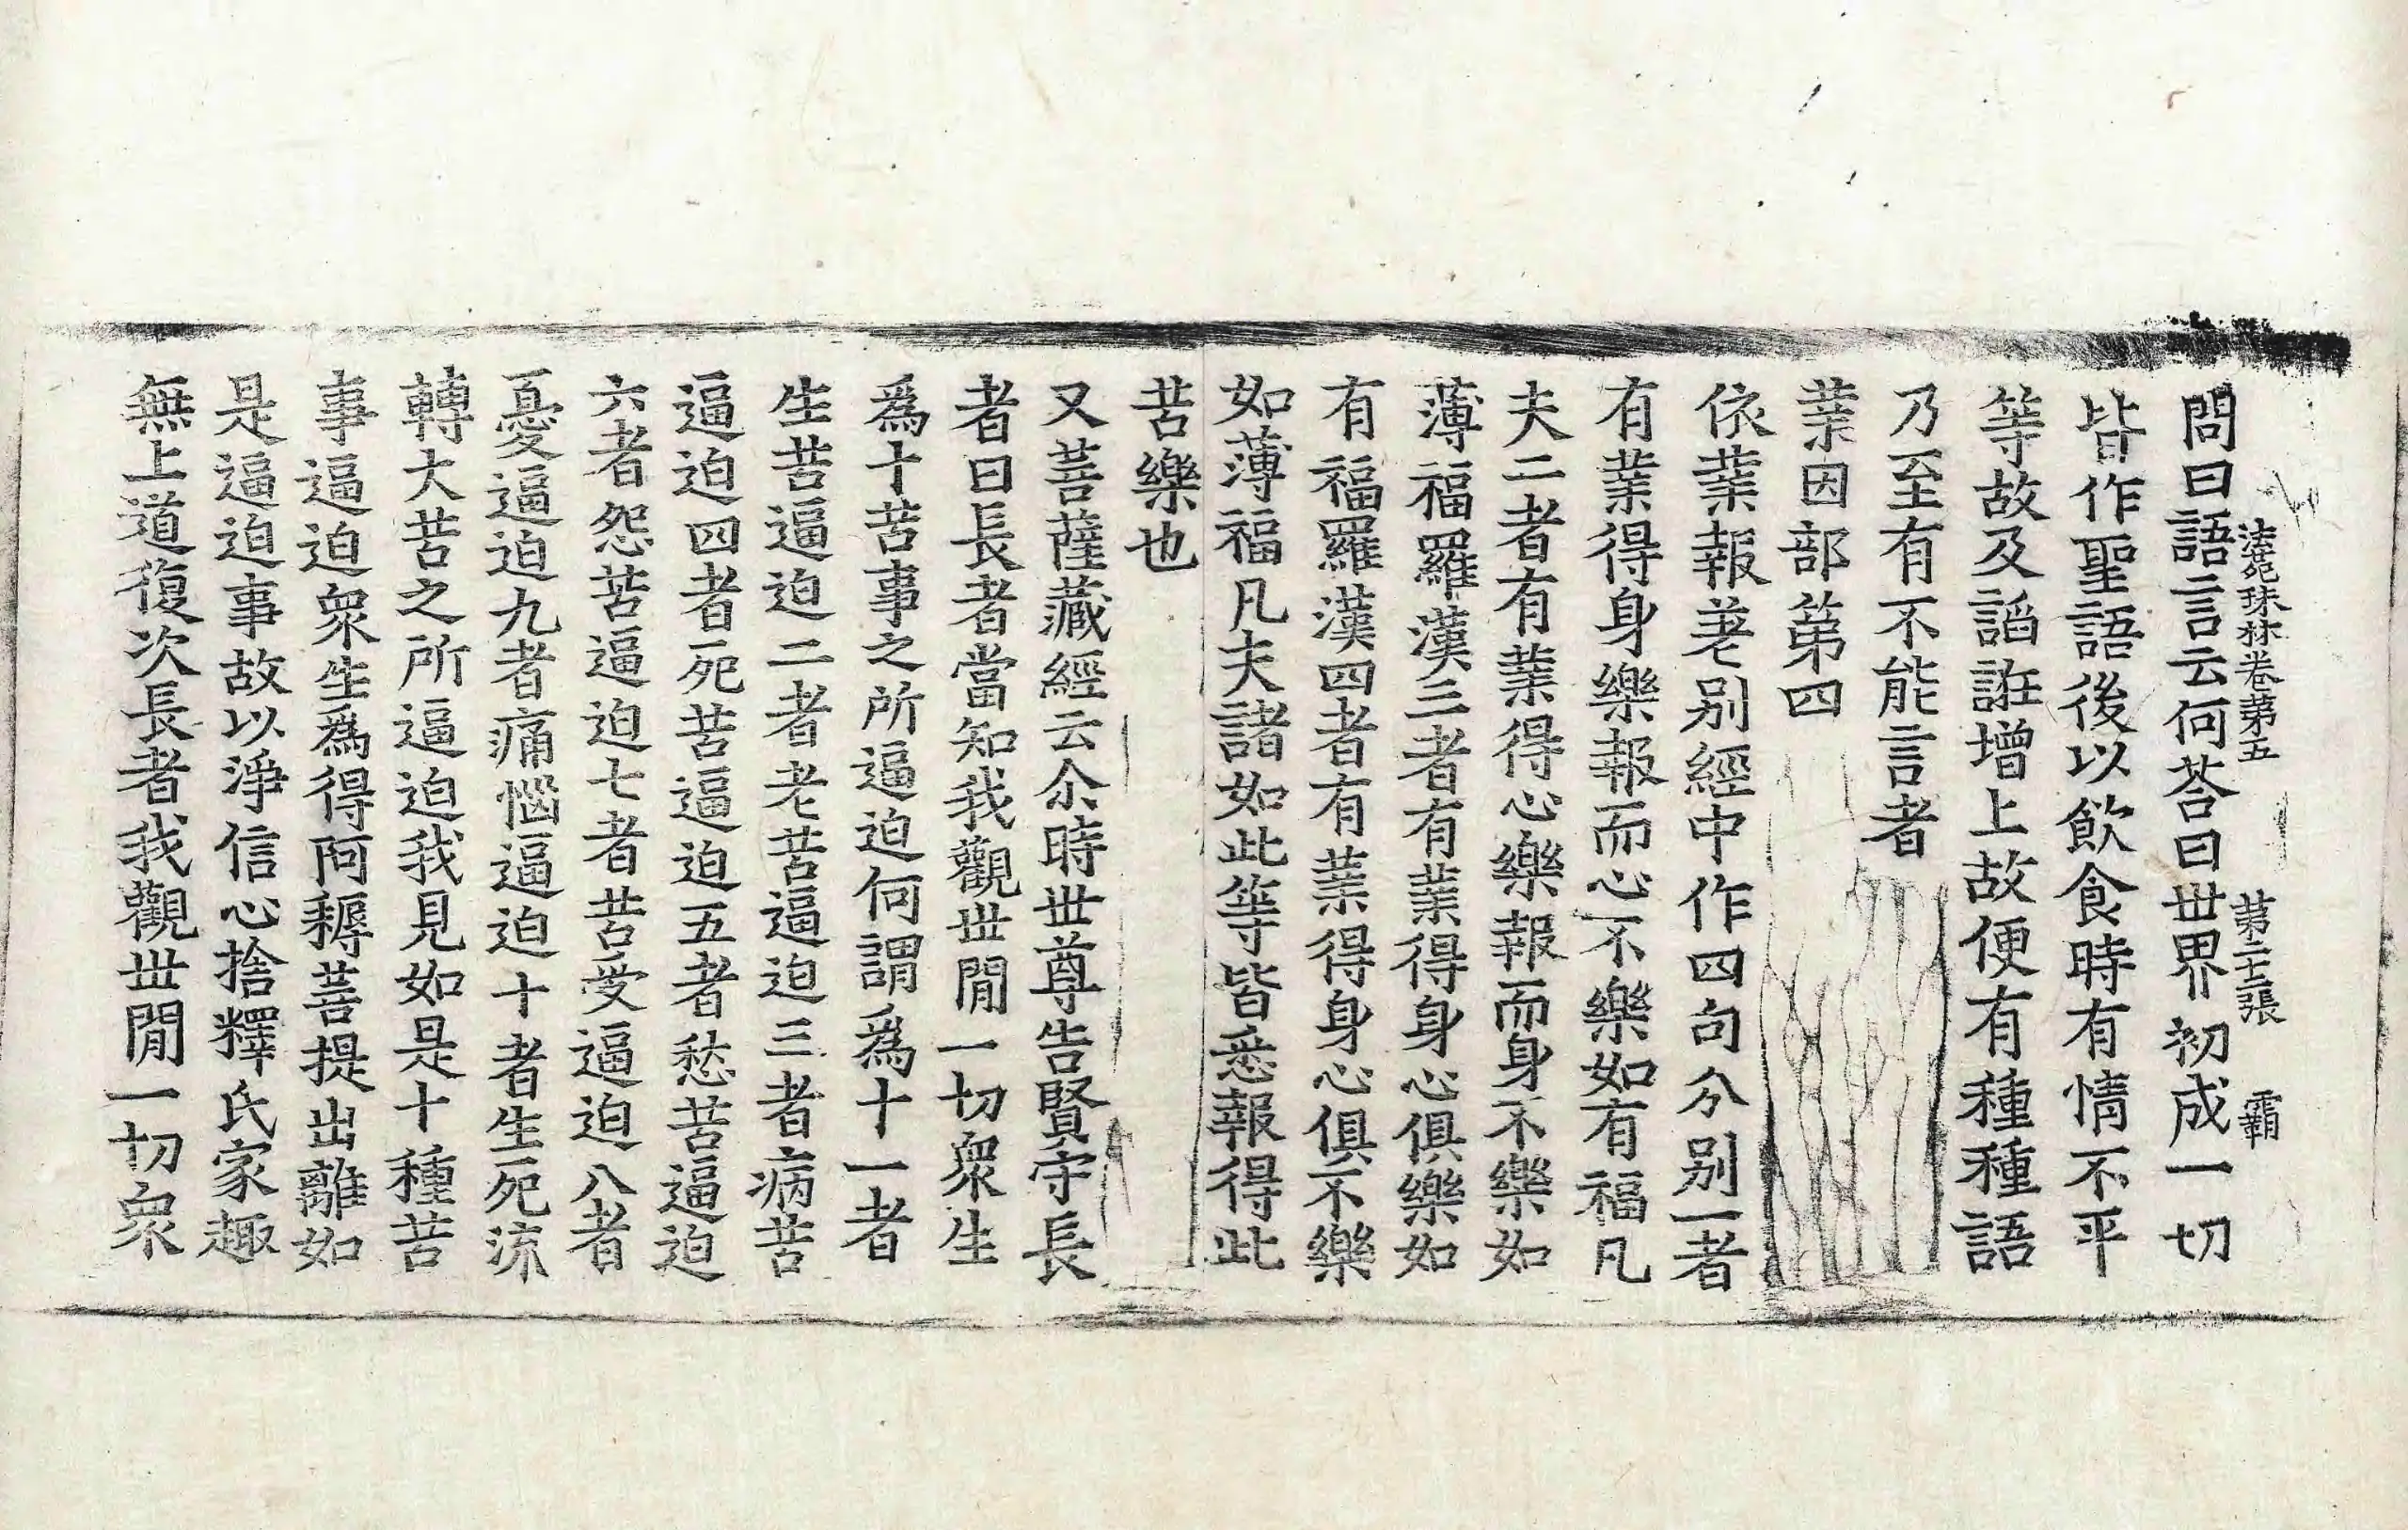 法苑珠林卷第五 第二十三張 霸
問曰語言云何荅曰世界初成一切
皆作聖語後以飲食時有情不平
等故及謟誑增上故便有種種語
乃至有不能言者
業因部第四
依業報差別經中作四句分別一者
有業得身樂報而心不樂如有福凡
夫二者有業得心樂報而身不樂如
薄福羅漢三者有業得身心俱樂如
有福羅漢四者有業得身心俱不樂
如薄福凡夫諸如此等皆悉報得此
苦樂也
又菩薩藏經云尒時世尊告賢守長
者曰長者當知我觀世間一切衆生
爲十苦事之所逼迫何謂爲十一者
生苦逼迫二者老苦逼迫三者病苦
逼迫四者死苦逼迫五者愁苦逼迫
六者怨苦逼迫七者苦受逼迫八者
憂逼迫九者痛惱逼迫十者生死流
轉大苦之所逼迫我見如是十種苦
事逼迫衆生爲得阿耨菩提出離如
是逼迫事故以淨信心捨釋氏家趣
無上道復次長者我觀世間一切衆